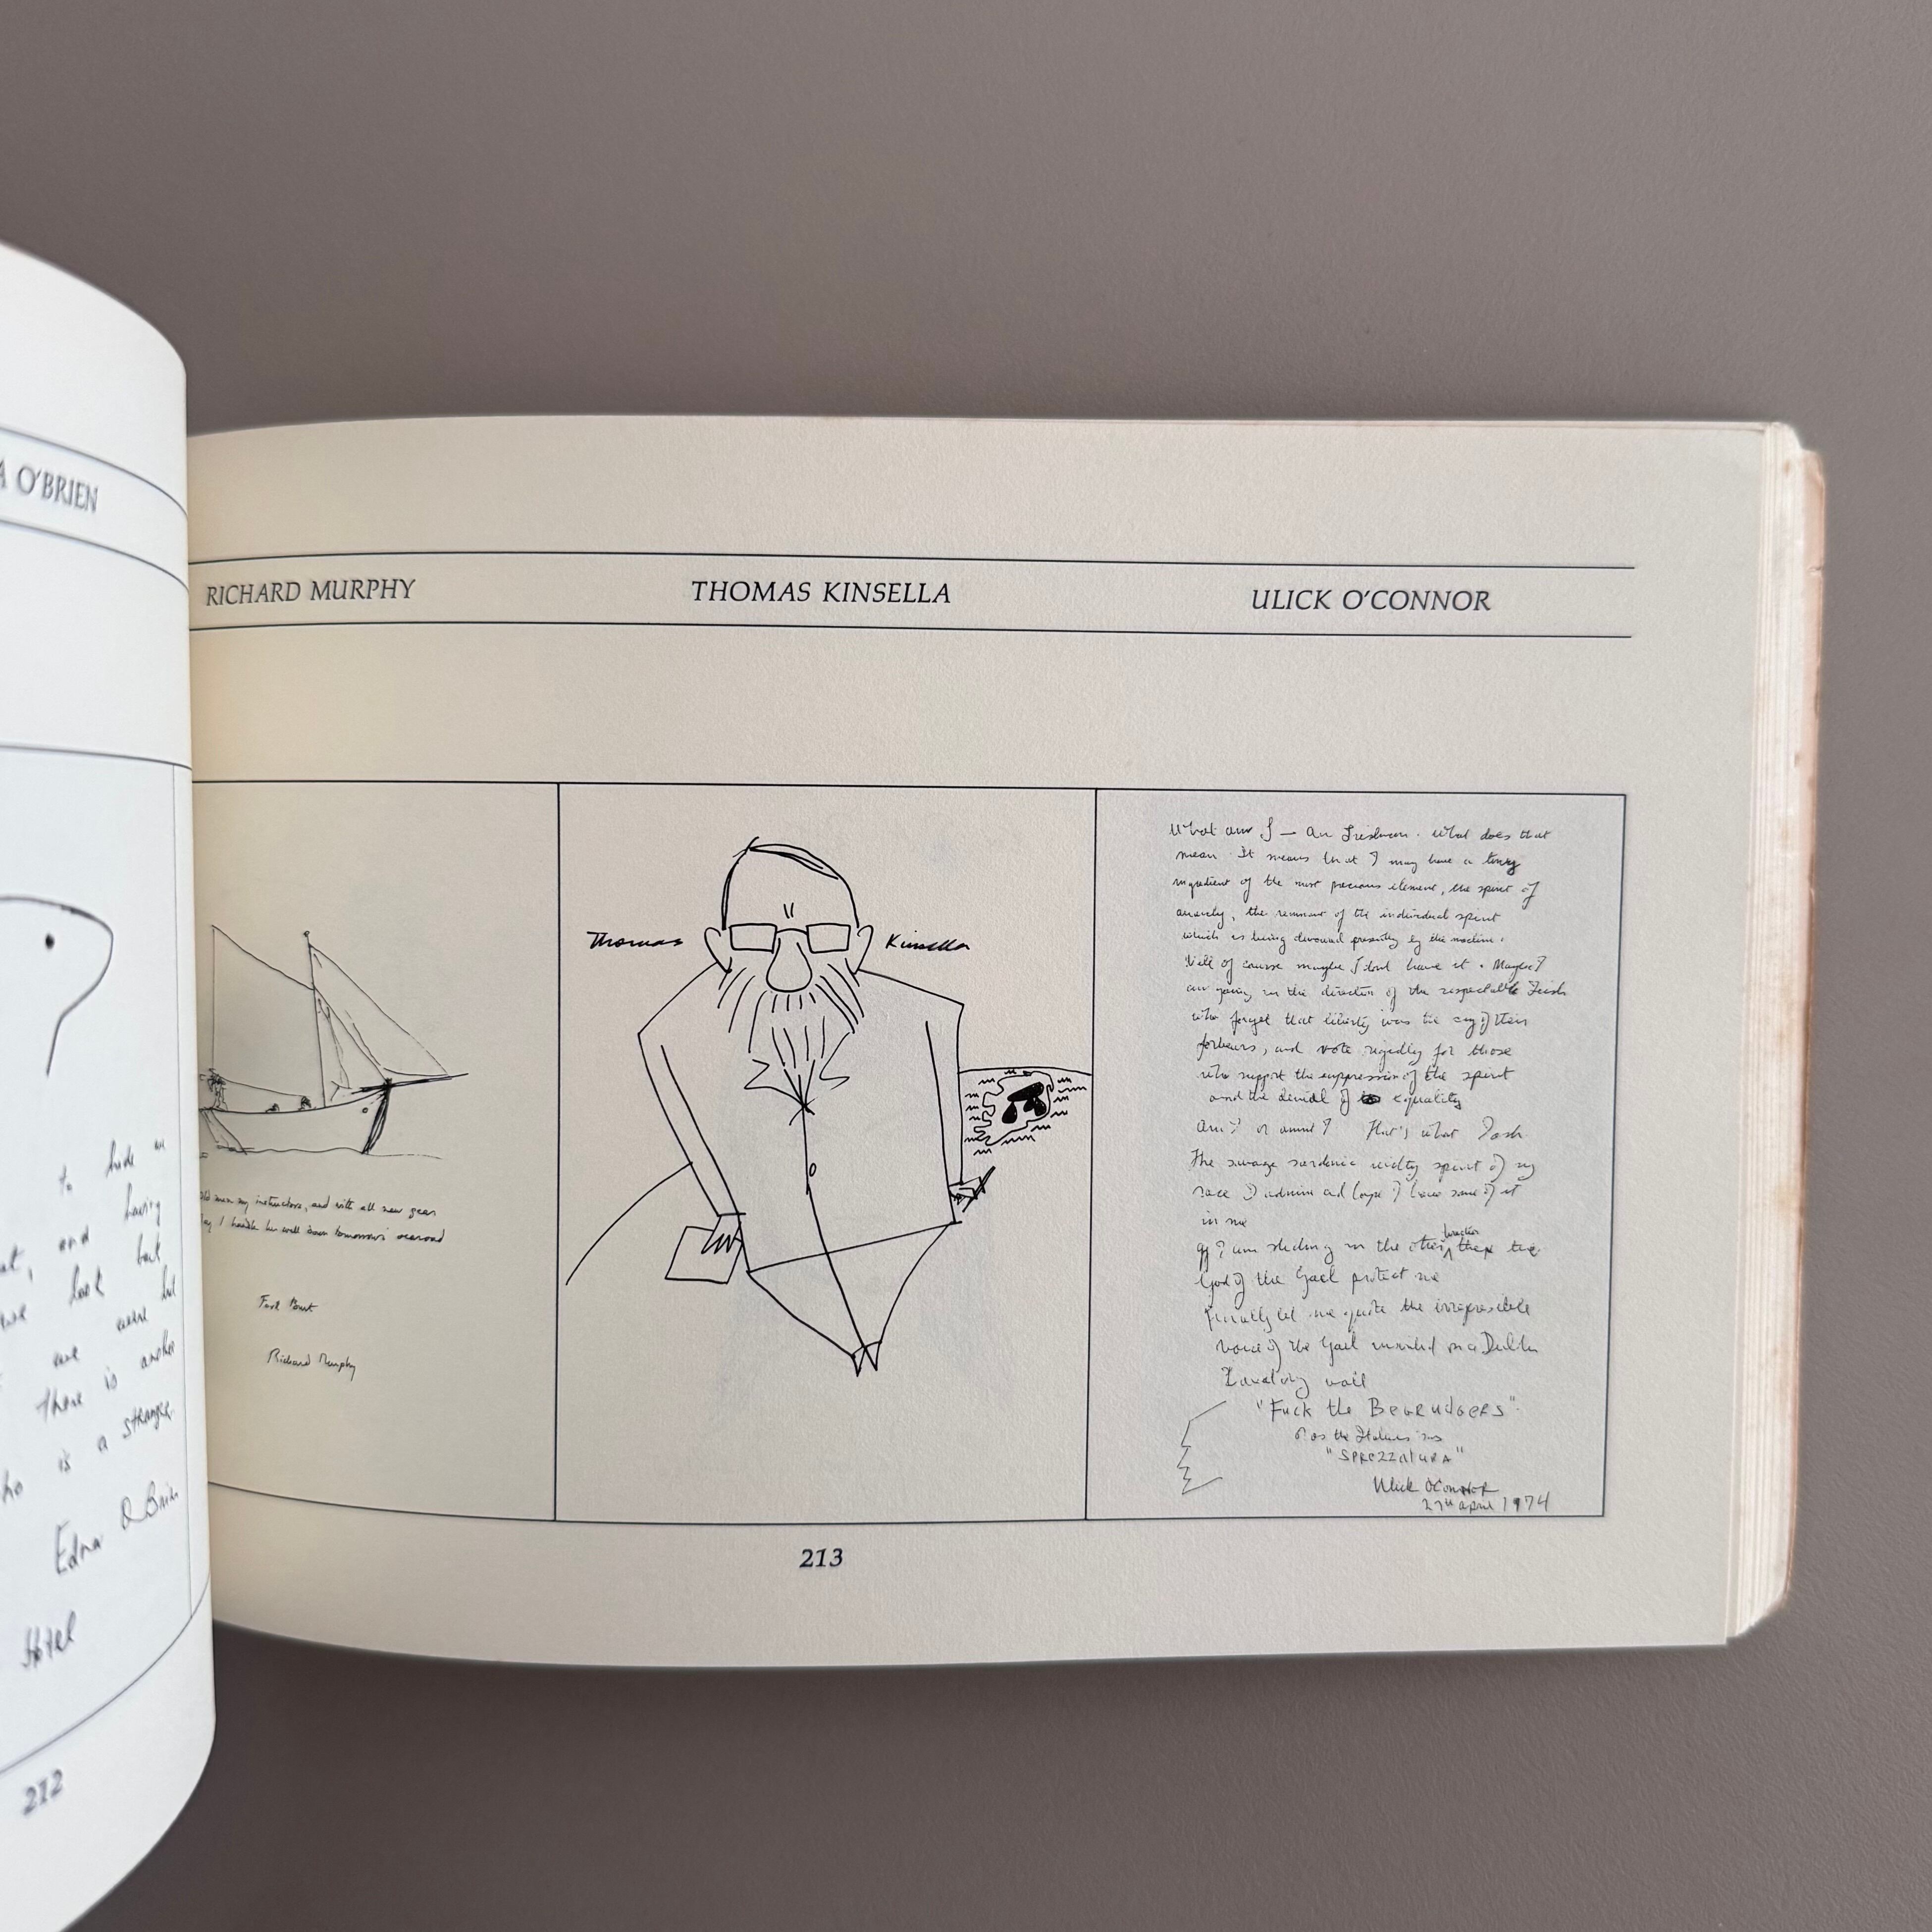 A O'BRIEN
to hide
at, and having
we look but
are were but
There is another
ho is a stranger.
Edna O Brien
Hotel
212
RICHARD MURPHY
THOMAS KINSELLA
ULICK O'CONNOR
old men my instructors, and with all new gear
I handle her well down tomorrow's sea road
Richard Murphy
Thomas Kinsella
What am I — An Irishman. What does that
mean It means that I may have a tiny
ingredient of the most precious element, the spirit of
anarchy, the remnant of the individual spirit
which is being devoured presently by the machine.
Well of course maybe I dont have it. Maybe I
am going in the direction of the respectable Irish
who forget that liberty was the cry of their
forbears, and vote rigidly for those
who support the suppression of the spirit
and the denial of equality
Am I or amnt I That's what I ask
The savage sardonic spirit of my
race I admire and hope I have some of it
in me
If I am sliding in the other direction then the
God of the Gael protect me
Finally let me quote the irrepressible
voice of the Gael on a Dublin
wall
"Fuck the BEGRUDGERS".
or as the Italians say
"SPREZZATURA"
Ulick O'Connor
27th April 1974
213